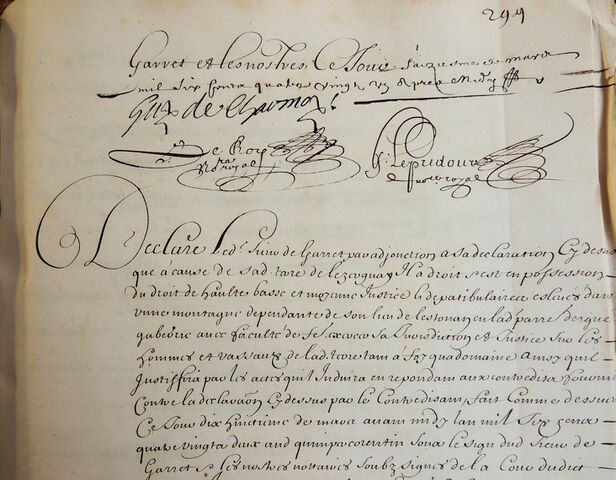 294
Garret et les nostres ce Jour saiziesme de mars
mil six cents quatre vingt apres midy
Guy de Charmoy
De Roy
No<sup>re</sup> royal
Le Predour
No<sup>re</sup> royal
Declare led. sieur de Garret par adjonction a sa declaration Cy dessus
que a cause de sad. terre de Lezerguay Il a droit et est en possession
du droit de haulte basse et moyenne Justice & patibulaire eslevés dans
unne montagne dependante de son lieu de Lestonan en lad. parre Dergue
gaberic avec faculté de sa Jurisdiction et Justice sur les
hommes et vassaux de lad. terre tant a quadomaine ainsy quil
Justiffira par les actes quil Induira en repondant aux contredits
Contre la declaration Cy dessus par le Contredisant, fait Comme dessus
Ce Jour dix huictiesme de mars avant midy lan mil Six cents
quatre vingts deux aud quimpercorentin soubz le sign dud sieur de
Garret & les nostres nottaires soubz signés de la Cour dudict